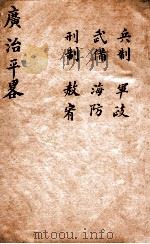 兵制 軍政
武備 海防
刑制 赦宥
廣治平畧
www.toutu100.com